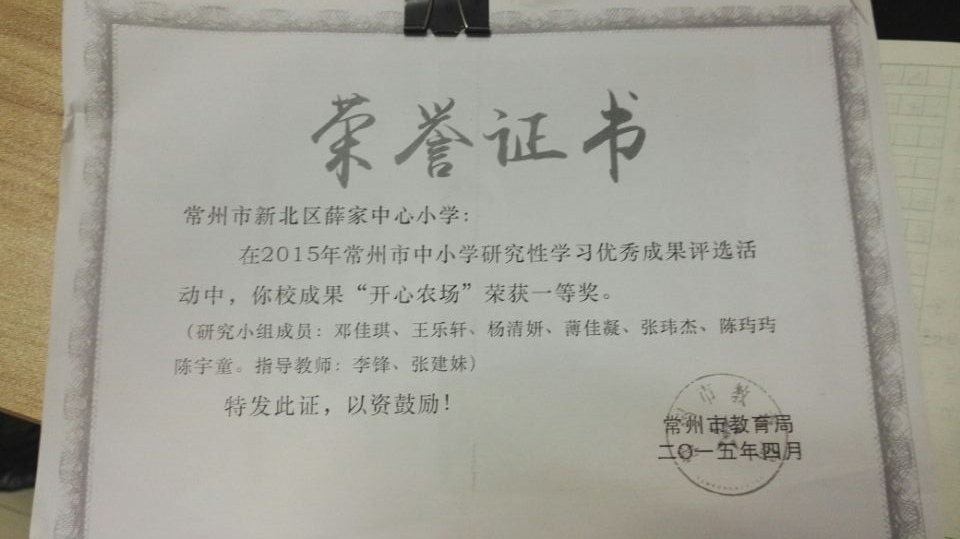 荣誉证书
常州市新北区薛家中心小学：
在2015年常州市中小学研究性学习优秀成果评选活
动中，你校成果“开心农场”荣获一等奖。
（研究小组成员：邓佳琪、王乐轩、杨清妍、薄佳凝、张玮杰、陈玙玙
陈宇童。指导教师：李锋、张建妹）
特发此证，以资鼓励！
常州市教育局
二〇一五年四月